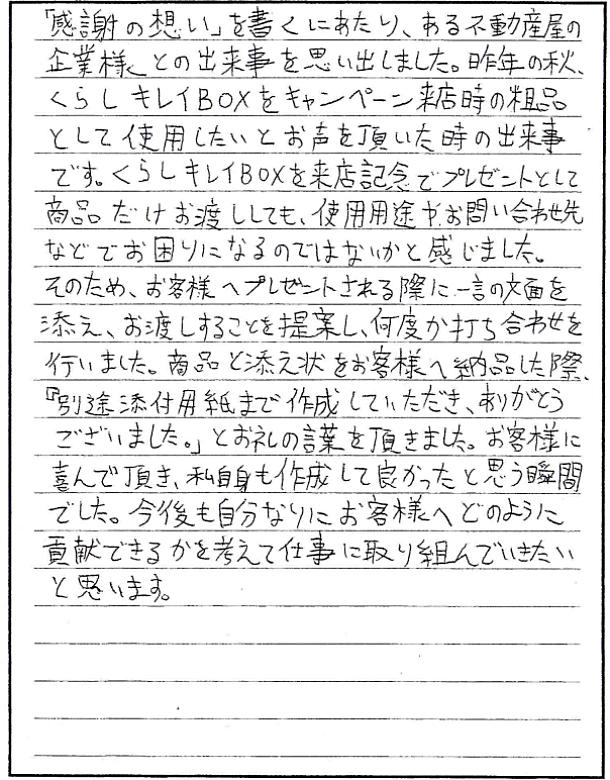 「感謝の想い」を書くにあたり、ある不動産屋の
企業様との出来事を思い出しました。昨年の秋、
くらしキレイBOXをキャンペーン来店時の粗品
として使用したいとお声を頂いた時の出来事
です。くらしキレイBOXを来店記念でプレゼントとして
商品だけお渡ししても、使用用途や、お問い合わせ先
などでお困りになるのではないかと感じました。
そのため、お客様へプレゼントされる際に一言の文面を
添え、お渡しすることを提案し、何度か打ち合わせを
行いました。商品と添え状をお客様へ納品した際、
『別途添付用紙まで作成していただき、ありがとう
ございました。」とお礼の言葉を頂きました。お客様に
喜んで頂き、私自身も作成して良かったと思う瞬間
でした。今後も自分なりにお客様へどのように
貢献できるかを考えて仕事に取り組んでいきたい
と思います。